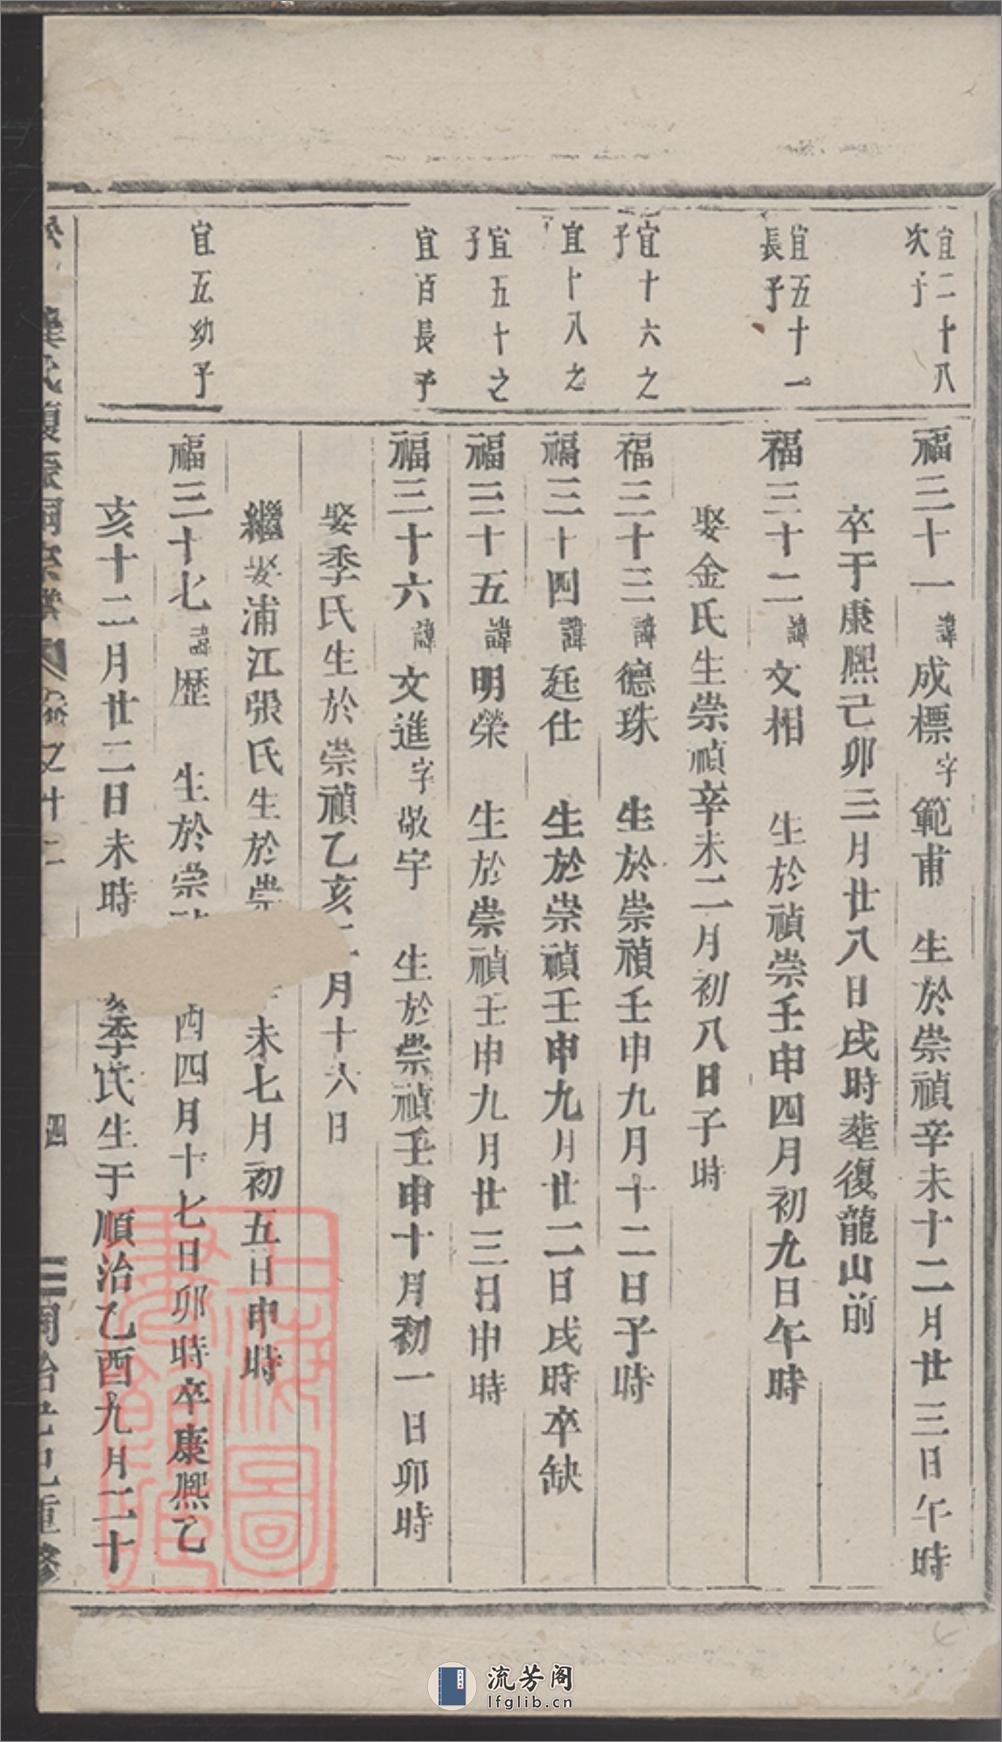 宜二十八
次子
福三十一 諱成標字範甫 生於崇禎辛未十二月廿三日午時
卒于康熙己卯三月廿八日戌時塟復龍山前
宜五十一
長子
福三十二 諱文相 生於禎崇壬申四月初九日午時
娶金氏生崇禎辛未二月初八日子時
宜十六之
子
福三十三 諱德珠 生於崇禎壬申九月十二日子時
宜十八之
福三十四 諱廷仕 生於崇禎壬申九月廿二日戌時卒缺
宜五十之
子
福三十五 諱明榮 生於崇禎壬申九月廿三日申時
宜百長子
福三十六 諱文進字敬宇 生於崇禎壬申十月初一日卯時
娶季氏生於崇禎乙亥二月十八日
繼娶浦江張氏生於崇 未七月初五日申時
宜五幼子
福三十七 諱歷 生於崇禎 酉四月十七日卯時卒康熙乙
亥十二月廿二日未時 娶季氏生于順治乙酉九月二十
龔氏復振同宗譜 卷之十二 四 同治己巳重修
上海圖
書館藏
流芳阁
lfglib.cn